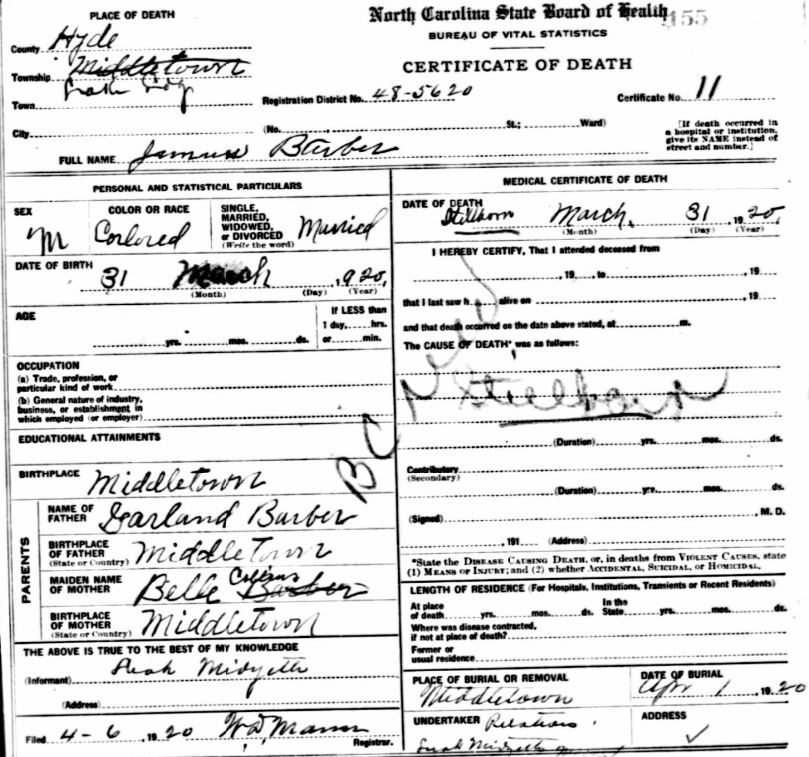 PLACE OF DEATH
North Carolina State Board of Health 155
BUREAU OF VITAL STATISTICS
CERTIFICATE OF DEATH
County Hyde
Township Middletown
Town
Registration District No. 48-5620 Certificate No. 11
City (No. , St.; Ward)
[If death occurred in
a hospital or institution,
give its NAME instead of
street and number.]
FULL NAME Barber
PERSONAL AND STATISTICAL PARTICULARS
SEX
M
COLOR OR RACE
Corlored
SINGLE,
MARRIED,
WIDOWED,
or DIVORCED
(Write the word)
Married
DATE OF BIRTH 31 March , 1920,
(Month) (Day) (Year)
AGE
yrs. mos. ds.
If LESS than
1 day, hrs.
or min.
OCCUPATION
(a) Trade, profession, or
particular kind of work
(b) General nature of industry,
business, or establishment in
which employed (or employer)
EDUCATIONAL ATTAINMENTS
BIRTHPLACE Middletown
PARENTS
NAME OF
FATHER Garland Barber
BIRTHPLACE
OF FATHER
(State or Country) Middletown
MAIDEN NAME
OF MOTHER Belle Barber
BIRTHPLACE
OF MOTHER
(State or Country) Middletown
THE ABOVE IS TRUE TO THE BEST OF MY KNOWLEDGE
(Informant) Midyette
(Address)
Filed 4-6, 1920 W.D. Mann
Registrar.
MEDICAL CERTIFICATE OF DEATH
DATE OF DEATH
Stillborn March, 31 1920,
(Month) (Day) (Year)
I HEREBY CERTIFY, That I attended deceased from
, 19 , to , 19
that I last saw h alive on , 19
and that death occurred on the date above stated, at m.
The CAUSE OF DEATH*, was as follows:
Stillborn
(Duration) yrs. mos. ds.
Contributory
(Secondary)
(Duration) yrs. mos. ds.
(Signed) , M. D.
, 191 (Address)
*State the DISEASE CAUSING DEATH, or, in deaths from VIOLENT CAUSES, state
(1) MEANS OF INJURY; and (2) whether ACCIDENTAL, SUICIDAL, or HOMICIDAL.
LENGTH OF RESIDENCE (For Hospitals, Institutions, Transients or Recent Residents)
At place
of death yrs. mos. ds. In the
State yrs. mos. ds.
Where was disease contracted,
if not at place of death?
Former or
usual residence
PLACE OF BURIAL OR REMOVAL
Middletown
DATE OF BURIAL
Apr 1, 1920
UNDERTAKER Relations.
Midyette
ADDRESS